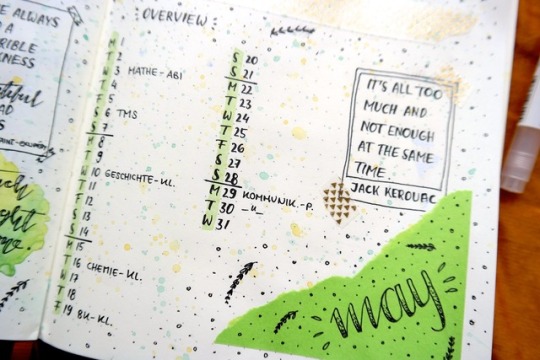 ALWAYS
A
OVERVIEW:
M 1
T 2
W 3 MATHE-ABI
T 4
F 5
S 6 TMS
S 7
M 8
T 9
W 10 GESCHICHTE-KL.
T 11
F 12
S 13
S 14
M 15
T 16 CHEMIE-KL.
W 17
T 18
F 19 BK-KL.
S 20
S 21
M 22
T 23
W 24
T 25
F 26
S 27
S 28
M 29 KOMMUNIK.-P.
T 30 -"-
W 31
IT'S ALL TOO
MUCH AND
NOT ENOUGH
AT THE SAME
TIME
JACK KEROUAC
may